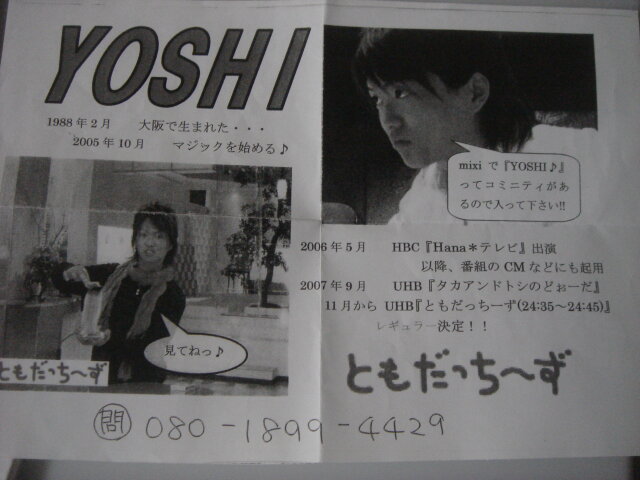 YOSHI
1988年2月 大阪で生まれた・・・
2005年10月 マジックを始める♪
mixi で『YOSHI♪』
ってコミニティがあ
るので入って下さい!!
2006年5月 HBC『Hana＊テレビ』出演
以降、番組のCMなどにも起用
2007年9月 UHB『タカアンドトシのどぉーだ』
11月から UHB『ともだっちーず(24:35～24:45)』
レギュラー決定！！
見てねっ♪
ともだっち～ず
ともだっち～ず
問 080-1899-4429